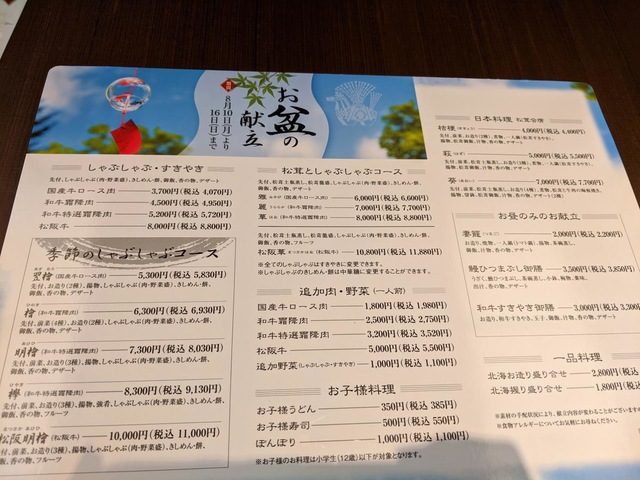 お盆の献立
期間
8月10日(月)より
16日(日)まで
しゃぶしゃぶ・すきやき
先付、しゃぶしゃぶ(肉・野菜盛)、きしめん・餅、御飯、香の物、デザート
国産牛ロース肉 3,700円(税込 4,070円)
和牛霜降肉 4,500円(税込 4,950円)
和牛特選霜降肉 5,200円(税込 5,720円)
松阪牛 8,000円(税込 8,800円)
季節のしゃぶしゃぶコース
翌檜 (国産牛ロース肉) 5,300円(税込 5,830円)
先付、お造り(2種)、揚物、しゃぶしゃぶ(肉・野菜盛)、きしめん・餅、
御飯、香の物、デザート
檜 (和牛霜降肉) 6,300円(税込 6,930円)
先付、前菜(4種)、お造り(2種)、揚物、しゃぶしゃぶ(肉・野菜盛)、きしめん・餅、
御飯、香の物、デザート
明檜 (和牛特選霜降肉) 7,300円(税込 8,030円)
先付、前菜、お造り(3種)、揚物、しゃぶしゃぶ(肉・野菜盛)、きしめん・餅、
御飯、香の物、デザート
(和牛特選霜降肉) 8,300円(税込 9,130円)
先付、前菜、お造り(3種)、揚物、強肴、しゃぶしゃぶ(肉・野菜盛)、きしめん・餅、
御飯、香の物、フルーツ
松阪明檜 (松阪牛) 10,000円(税込 11,000円)
先付、前菜、お造り(3種)、揚物、しゃぶしゃぶ(肉・野菜盛)、きしめん・餅、
御飯、香の物、デザート
松茸としゃぶしゃぶコース
先付、松茸土瓶蒸し、松茸盛盛、しゃぶしゃぶ(肉・野菜盛)、きしめん・餅、
御飯、香の物、デザート
雅 (国産牛ロース肉) 6,000円(税込 6,600円)
麗 (和牛霜降肉) 7,000円(税込 7,700円)
(和牛特選霜降肉) 8,000円(税込 8,800円)
先付、松茸土瓶蒸し、松茸盛盛、しゃぶしゃぶ(肉・野菜盛)、きしめん・餅、
御飯、香の物、フルーツ
(松阪牛) 10,800円(税込 11,880円)
※全てのしゃぶしゃぶはすきやきに変更できます。
※しゃぶしゃぶのきしめん・餅は中華麺に変更することができます。
追加肉・野菜 (一人前)
国産牛ロース肉 1,800円(税込 1,980円)
和牛霜降肉 2,500円(税込 2,750円)
和牛特選霜降肉 3,200円(税込 3,520円)
松阪牛 5,000円(税込 5,500円)
追加野菜(しゃぶしゃぶ・すきやき) 1,000円(税込 1,100円)
お子様料理
お子様うどん 350円(税込 385円)
お子様寿司 500円(税込 550円)
ぼんぼり 1,000円(税込 1,100円)
※お子様のお料理は小学生(12歳)以下が対象となります。
日本料理 松茸会席
桔梗 (ききょう) 4,000円(税込 4,400円)
萩 (はぎ) 5,000円(税込 5,500円)
葵 (あおい) 7,000円(税込 7,700円)
お昼のみのお献立
2,000円(税込 2,200円)
お造り、焼物、一人鍋(つくり鍋)、揚物、茶碗蒸し、
御飯、汁物、香の物、デザート
鰻ひつまぶし御膳 3,500円(税込 3,850円)
うざく、鰻ひつまぶし、茶碗蒸し、小鉢、麺物、薬味、
出汁、香の物、デザート
和牛すきやき御膳 3,000円(税込 3,300円)
お造り、和牛すきやき、玉子、御飯、汁物、香の物、デザート
一品料理
北海お造り盛り合せ 2,800円(税込
北海握り盛り合せ 1,800円(税込
※素材の手配状況により、献立内容が変わることがございます
※食物アレルギーについてお気軽にお尋ねください。